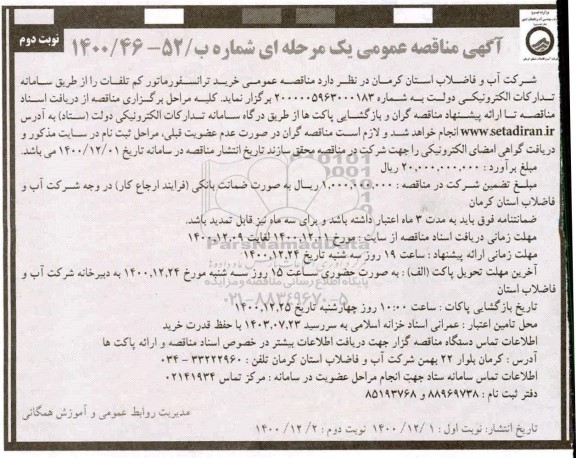 نوبت دوم
آگهی مناقصه عمومی یک مرحله ای شماره ب/۵۲- ۱۴۰۰/۴۶
شرکت آب و فاضلاب استان کرمان در نظر دارد مناقصه عمومی خرید ترانسفورماتور کم تلفات را از طریق سامانه
تدارکات الکترونیکی دولت به شماره ۲۰۰۰۰۰۵۹۶۳۰۰۰۱۸۳ برگزار نماید. کلیه مراحل برگزاری مناقصه از دریافت اسناد
مناقصه تا ارائه پیشنهاد مناقصه گران و بازگشایی پاکت ها از طریق درگاه سامانه تدارکات الکترونیکی دولت (ستاد) به آدرس
www.setadiran.ir انجام خواهد شد و لازم است مناقصه گران در صورت عدم عضویت قبلی، مراحل ثبت نام در سایت مذکور و
دریافت گواهی امضای الکترونیکی را جهت شرکت در مناقصه محقق سازند تاریخ انتشار مناقصه در سامانه تاریخ ۱۴۰۰/۱۲/۰۱ می باشد.
مبلغ برآورد : ۲۰,۰۰۰,۰۰۰,۰۰۰ ریال
مبلغ تضمین شرکت در مناقصه : ۱,۰۰۰,۰۰۰,۰۰۰ ریال به صورت ضمانت بانکی (فرایند ارجاع کار) در وجه شرکت آب و
فاضلاب استان کرمان
ضمانتنامه فوق باید به مدت ۳ ماه اعتبار داشته باشد و برای سه ماه نیز قابل تمدید باشد.
مهلت زمانی دریافت اسناد مناقصه از سایت : مورخ ۱۴۰۰,۱۲,۰۱ لغایت ۱۴۰۰,۱۲,۰۹
مهلت زمانی ارائه پیشنهاد : ساعت ۱۹ روز سه شنبه تاریخ ۱۴۰۰,۱۲,۲۴
آخرین مهلت تحویل پاکت (الف) : به صورت حضوری ساعت ۱۵ روز سه شنبه مورخ ۱۴۰۰,۱۲,۲۴ به دبیرخانه شرکت آب و
فاضلاب استان
تاریخ بازگشایی پاکات : ساعت ۱۰:۰۰ روز چهارشنبه تاریخ ۱۴۰۰,۱۲,۲۵
محل تامین اعتبار : عمرانی اسناد خزانه اسلامی به سررسید ۱۴۰۳,۰۷,۲۳ با حفظ قدرت خرید
اطلاعات تماس دستگاه مناقصه گزار جهت دریافت اطلاعات بیشتر در خصوص اسناد مناقصه و ارائه پاکت ها
آدرس : کرمان بلوار ۲۲ بهمن شرکت آب و فاضلاب استان کرمان تلفن : ۳۳۲۲۲۹۶۰ - ۰۳۴
اطلاعات تماس سامانه ستاد جهت انجام مراحل عضویت در سامانه : مرکز تماس ۰۲۱۴۱۹۳۴
دفتر ثبت نام : ۸۸۹۶۹۷۳۸ و ۸۵۱۹۳۷۶۸
مدیریت روابط عمومی و آموزش همگانی
تاریخ انتشار: نوبت اول : ۱/ ۱۲/ ۱۴۰۰ نوبت دوم : ۲/ ۱۲/ ۱۴۰۰
ParsNamadData
پایگاه اطلاع رسانی مناقصه و مزایده
۰۲۱-۸۸۳۴۹۶۷۰-۵